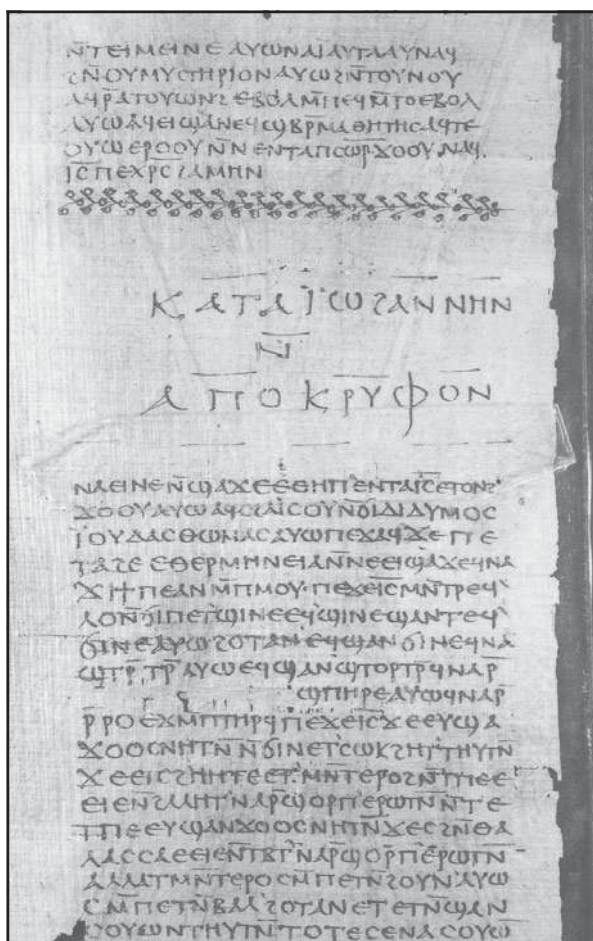 ⲛ̅ⲧⲉⲓⲙⲉⲓⲛⲉⲁⲩⲱⲛⲁⲓⲁⲩⲧⲁⲁⲩⲛⲁϥ
ϩⲛ̅ⲟⲩⲙⲩⲥⲧⲏⲣⲓⲟⲛⲁⲩⲱϩⲛ̅ⲧⲟⲩⲛⲟⲩ
ⲁϥⲣ̅ⲁⲧⲟⲩⲱⲛϩⲉⲃⲟⲗⲙ̅ⲡⲉϥⲙ̅ⲧⲟⲉⲃⲟⲗ
ⲁⲩⲱⲁϥⲉⲓϣⲁⲛⲉϥϣⲃⲣ̅ⲙⲁⲑⲏⲧⲏⲥⲁϥⲧⲉ
ⲟⲩⲱⲉⲣⲟⲟⲩⲛ̅ⲛⲉⲛⲧⲁⲡⲥⲱ̅ⲣ̅ϫⲟⲟⲩⲛⲁϥ
ⲓ̅ⲥ̅ⲡⲉⲭⲣ̅ⲥ̅ϩⲁⲙⲏⲛ
ⲕⲁⲧⲁⲓ̈ⲱϩⲁⲛⲛⲏⲛ
ⲛ̅
ⲁⲡⲟⲕⲣⲩⲫⲟⲛ
ⲛⲁⲉⲓⲛⲉⲛ̅ϣⲁϫⲉⲉⲑⲏⲡⲉⲛⲧⲁⲓ̅ⲥ̅ⲉⲧⲟⲛϩ
ϫⲟⲟⲩⲁⲩⲱⲁϥⲥϩⲁⲓ̈ⲥⲟⲩⲛ̅ϭⲓⲇⲓⲇⲩⲙⲟⲥ
ⲓ̈ⲟⲩⲇⲁⲥⲑⲱⲙⲁⲥⲁⲩⲱⲡⲉϫⲁϥϫⲉⲡⲉ
ⲧⲁϩⲉⲉⲑⲉⲣⲙⲏⲛⲉⲓⲁⲛ̅ⲛⲉⲉⲓϣⲁϫⲉϥⲛⲁ
ϫⲓϯⲡⲉⲁⲛⲙ̅ⲡⲙⲟⲩ·ⲡⲉϫⲉⲓ̅ⲥ̅ⲙⲛ̅ⲧⲣⲉϥ
ⲗⲟⲛ̅ϭⲓⲡⲉⲧϣⲓⲛⲉⲉϥϣⲓⲛⲉϣⲁⲛⲧⲉϥ
ϭⲓⲛⲉⲁⲩⲱϩⲟⲧⲁⲛⲉϥϣⲁⲛϭⲓⲛⲉϥⲛⲁ
ϣⲧⲣ̅ⲧⲣ̅ⲁⲩⲱⲉϥϣⲁⲛϣⲧⲟⲣⲧⲣ̅ϥⲛⲁⲣ̅
ϣⲡⲏⲣⲉⲁⲩⲱϥⲛⲁⲣ̅
ⲣ̅ⲣⲟⲉϫⲙ̅ⲡⲧⲏⲣϥ̅ⲡⲉϫⲉⲓ̅ⲥ̅ϫⲉⲉⲩϣⲁ
ϫⲟⲟⲥⲛⲏⲧⲛ̅ⲛ̅ϭⲓⲛⲉⲧⲥⲱⲕϩⲏⲧⲧⲏⲩⲧⲛ̅
ϫⲉⲉⲓⲥϩⲏⲏⲧⲉⲉⲧⲙⲛ̅ⲧⲉⲣⲟϩⲛ̅ⲧⲡⲉⲉ
ⲉⲓⲉⲛ̅ϩⲁⲗⲏⲧⲛⲁⲣ̅ϣⲟⲣⲡⲉⲣⲱⲧⲛ̅ⲛ̅ⲧⲉ
ⲧⲡⲉⲉⲩϣⲁⲛϫⲟⲟⲥⲛⲏⲧⲛ̅ϫⲉⲥϩⲛ̅ⲑⲁ
ⲗⲁⲥⲥⲁⲉⲉⲓⲉⲛ̅ⲧⲃⲧ̅ⲛⲁⲣ̅ϣⲟⲣⲡⲉⲣⲱⲧⲛ̅
ⲁⲗⲗⲁⲧⲙⲛ̅ⲧⲉⲣⲟⲥⲙ̅ⲡⲉⲧⲛ̅ϩⲟⲩⲛⲁⲩⲱ
ⲥⲙ̅ⲡⲉⲧⲛ̅ⲃⲁⲗϩⲟⲧⲁⲛⲉⲧⲉⲧⲛ̅ϣⲁⲛ
ⲥⲟⲩⲱⲛⲧⲏⲩⲧⲛ̅ⲧⲟⲧⲉⲥⲉⲛⲁⲥⲟⲩⲱ